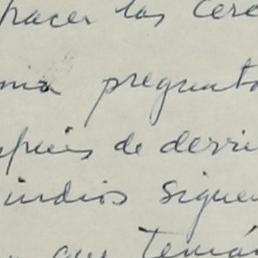 hacer las cere
mia pregunta
spués de derri
indios siguen
que tenía